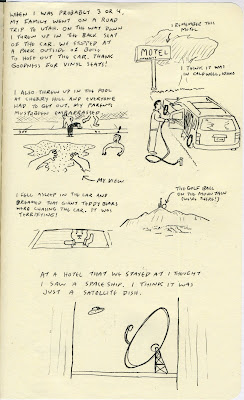 WHEN I WAS PROBABLY 3 OR 4,
MY FAMILY WENT ON A ROAD
TRIP TO UTAH. ON THE WAY DOWN
I THREW UP IN THE BACK SEAT
OF THE CAR. WE STOPPED AT
A PARK OUTSIDE OF BOISE
TO HOSE OUT THE CAR. THANK
GOODNESS FOR VINYL SEATS!
I REMEMBER THIS
MOTEL
MOTEL
I THINK IT WAS
IN CALDWELL, IDAHO
I ALSO THREW UP IN THE POOL
AT CHERRY HILL AND EVERYONE
HAD TO GET OUT. MY PARENTS
MUST'VE BEEN EMBARRASSED
MY VIEW
I FELL ASLEEP IN THE CAR AND
DREAMED THAT GIANT TEDDY BEARS
WERE CHASING THE CAR. IT WAS
TERRIFYING!
THE GOLF BALL
ON THE MOUNTAIN
AT A HOTEL THAT WE STAYED AT I THOUGHT
I SAW A SPACE SHIP. I THINK IT WAS
JUST A SATELLITE DISH.